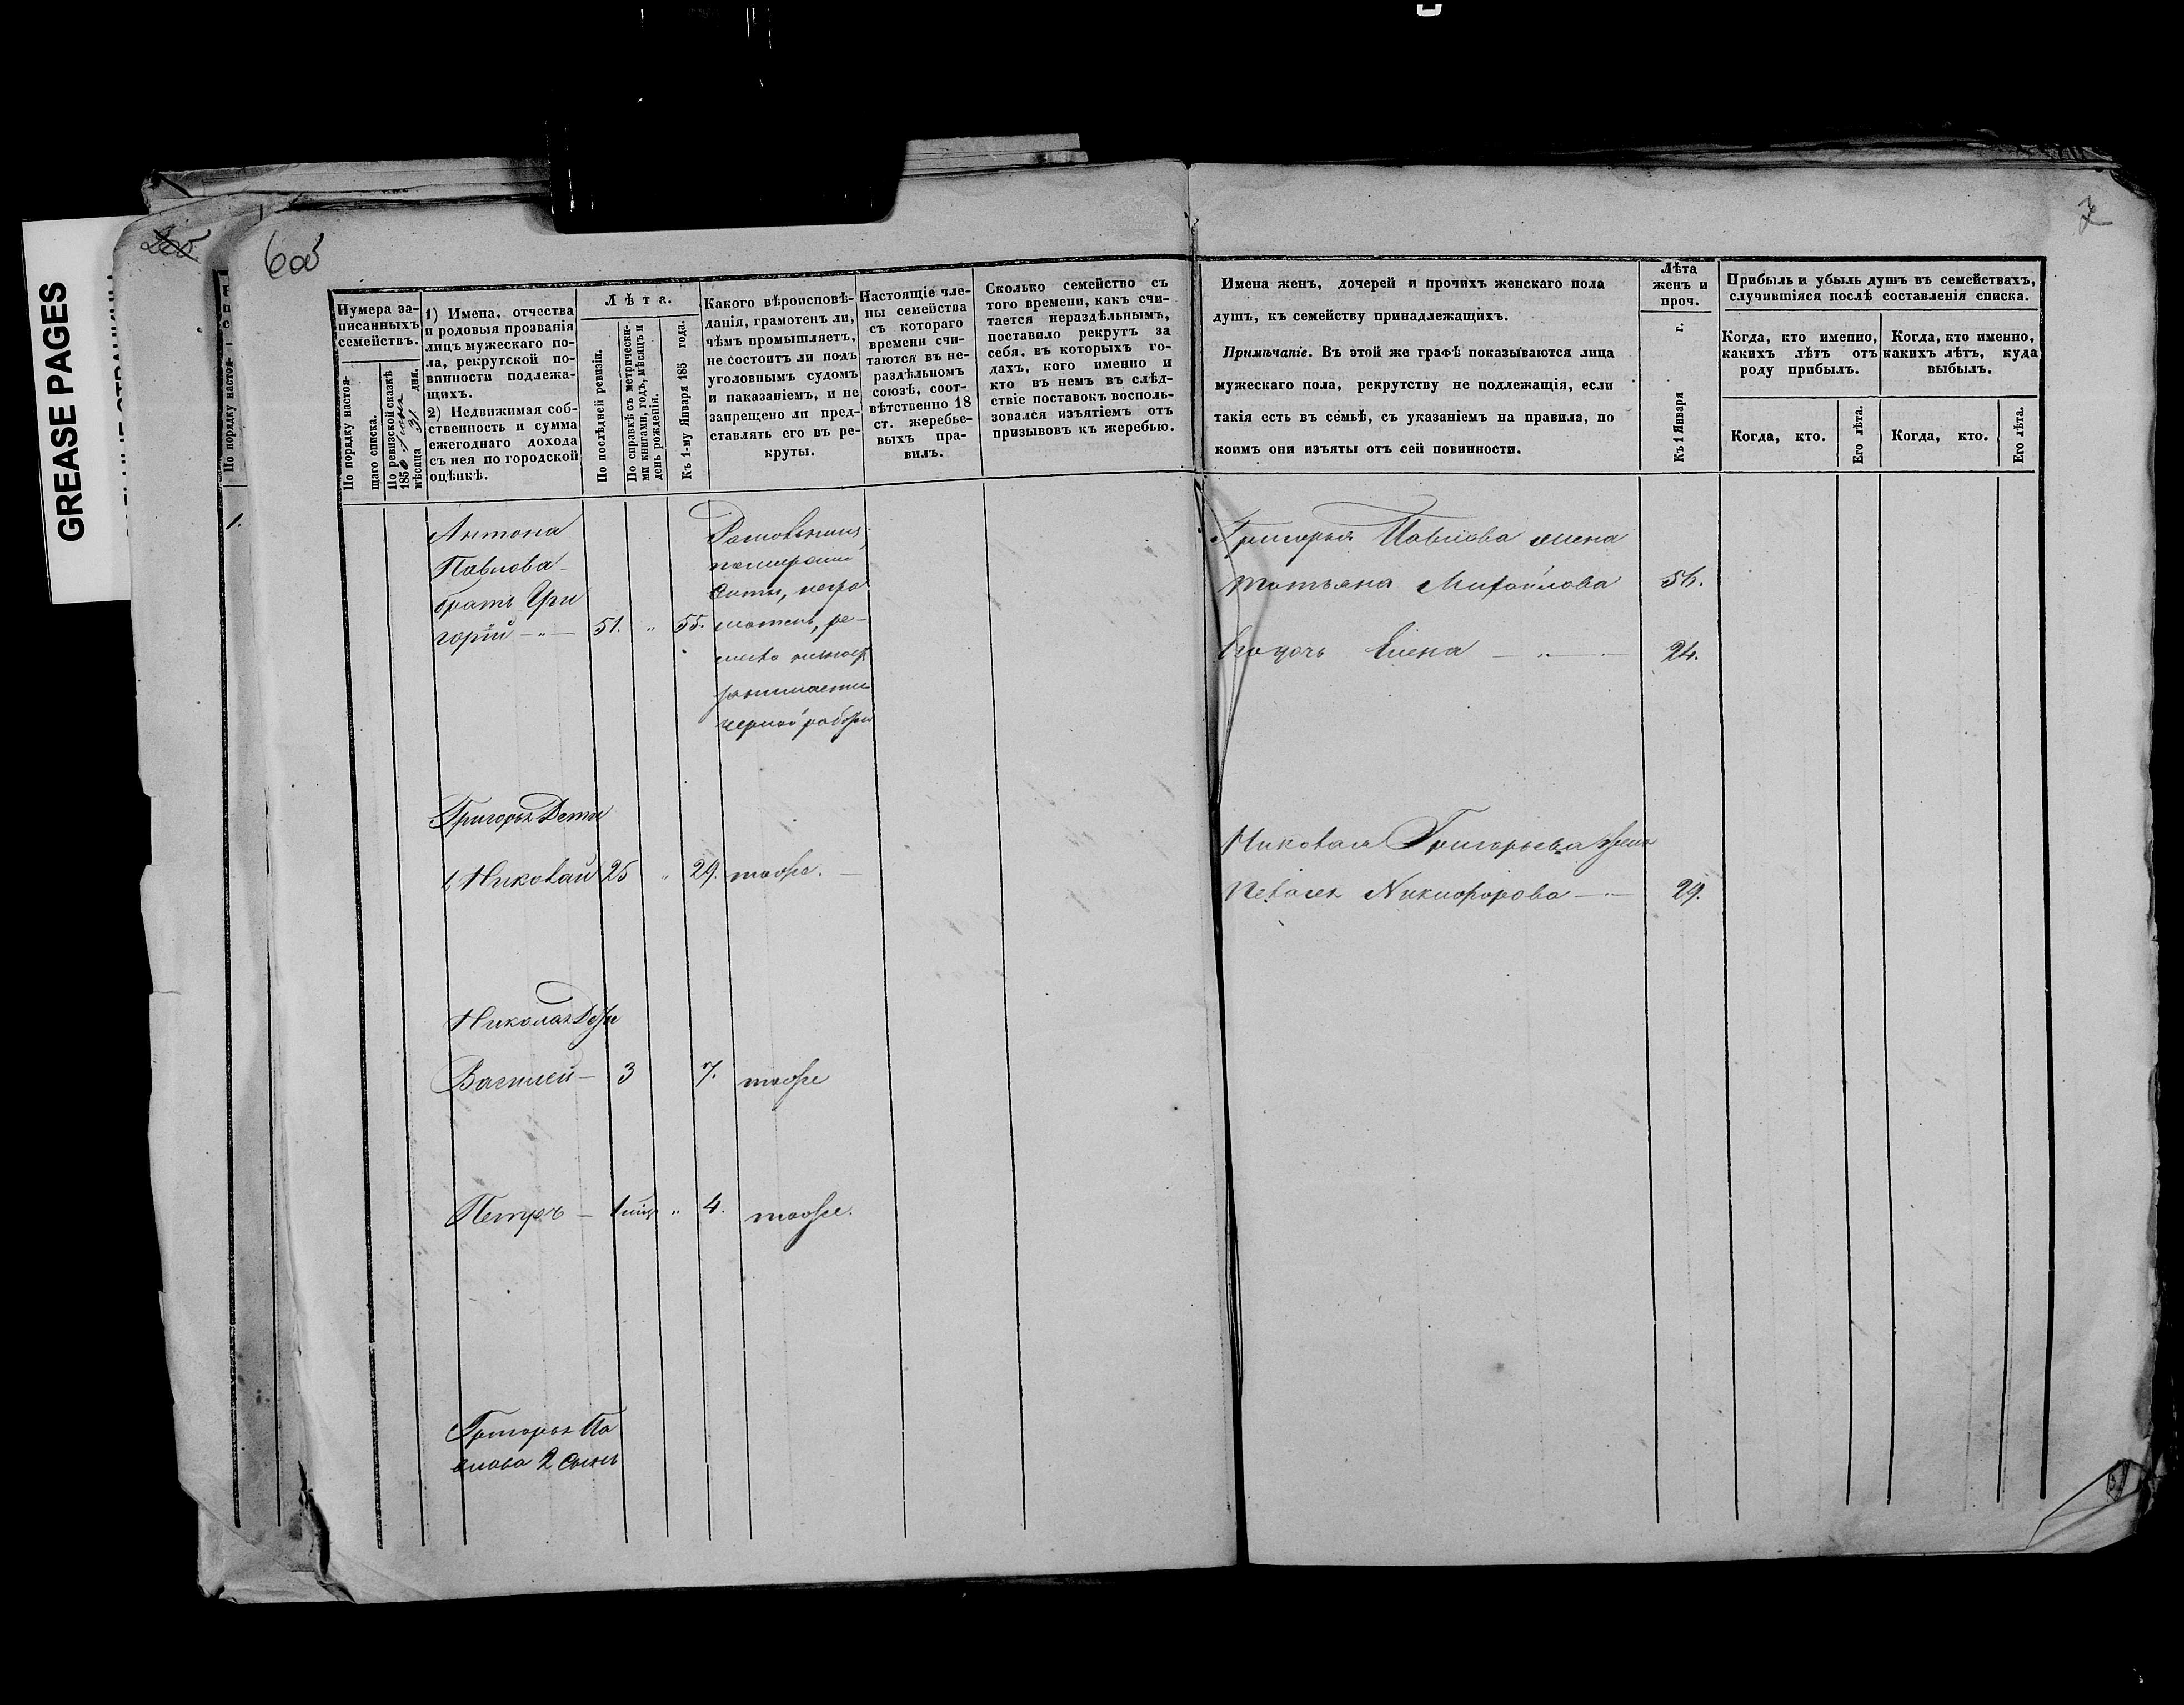 GREASE PAGES
6 об
7
Нумера записанныхъ семействъ.
По порядку настоящаго списка.
По ревизской сказкѣ 1850 мѣсяца 31 дня.
1) Имена, отчества
и родовыя прозванія
лицъ мужескаго по-
ла, рекрутской по-
винности подлежа-
щихъ.
2) Недвижимая соб-
ственность и сумма
ежегоднаго дохода
съ нея по городской
оцѣнкѣ.
Лѣта.
По послѣдней ревизіи.
По справкѣ съ метрически-
ми книгами, годъ, мѣсяцъ и
день рожденія.
Къ 1-му Января 185 года.
Какого вѣроисповѣ-
данія, грамотенъ ли,
чѣмъ промышляетъ,
не состоитъ ли подъ
уголовнымъ судомъ
и наказаніемъ, и не
запрещено ли пред-
ставлять его въ ре-
круты.
Настоящіе чле-
ны семейства
съ котораго
времени счи-
таются въ не-
раздѣльномъ
союзѣ, соот-
вѣтственно 18
ст. жеребье-
выхъ пра-
вилъ.
Сколько семейство съ
того времени, какъ счи-
тается нераздѣльнымъ,
поставило рекрутъ за
себя, въ которыхъ го-
дахъ, кого именно и
кто въ немъ въ слѣд-
ствіе поставокъ восполь-
зовался изъятіемъ отъ
призывовъ къ жеребью.
Имена женъ, дочерей и прочихъ женскаго пола
душъ, къ семейству принадлежащихъ.
Примѣчаніе. Въ этой же графѣ показываются лица
мужескаго пола, рекрутству не подлежащія, если
такія есть въ семьѣ, съ указаніемъ на правила, по
коимъ они изъяты отъ сей повинности.
Лѣта
женъ и
проч.
Къ 1 Января г.
Прибыль и убыль душъ въ семействахъ,
случившіяся послѣ составленія списка.
Когда, кто именно,
какихъ лѣтъ отъ
роду прибылъ.
Когда, кто именно,
какихъ лѣтъ, куда
выбылъ.
Когда, кто.
Его лѣта.
Когда, кто.
Его лѣта.
Антона
Павлова
братъ Гри
горій 51. " 55.
негра
мотенъ, ре-
занимается
черной работой
Григорья Павлова жена
Татьяна Михайлова 56.
Его дочь Елена 24.
Григорья Дети
1 Николай 25 " 29. тоже.
Николая Григорьева жена
Пелагея Никифорова 29.
Николая Дети
Василей 3 7. тоже
Петръ 1 " 4. тоже.
Григорья Па
влова 2 сынъ